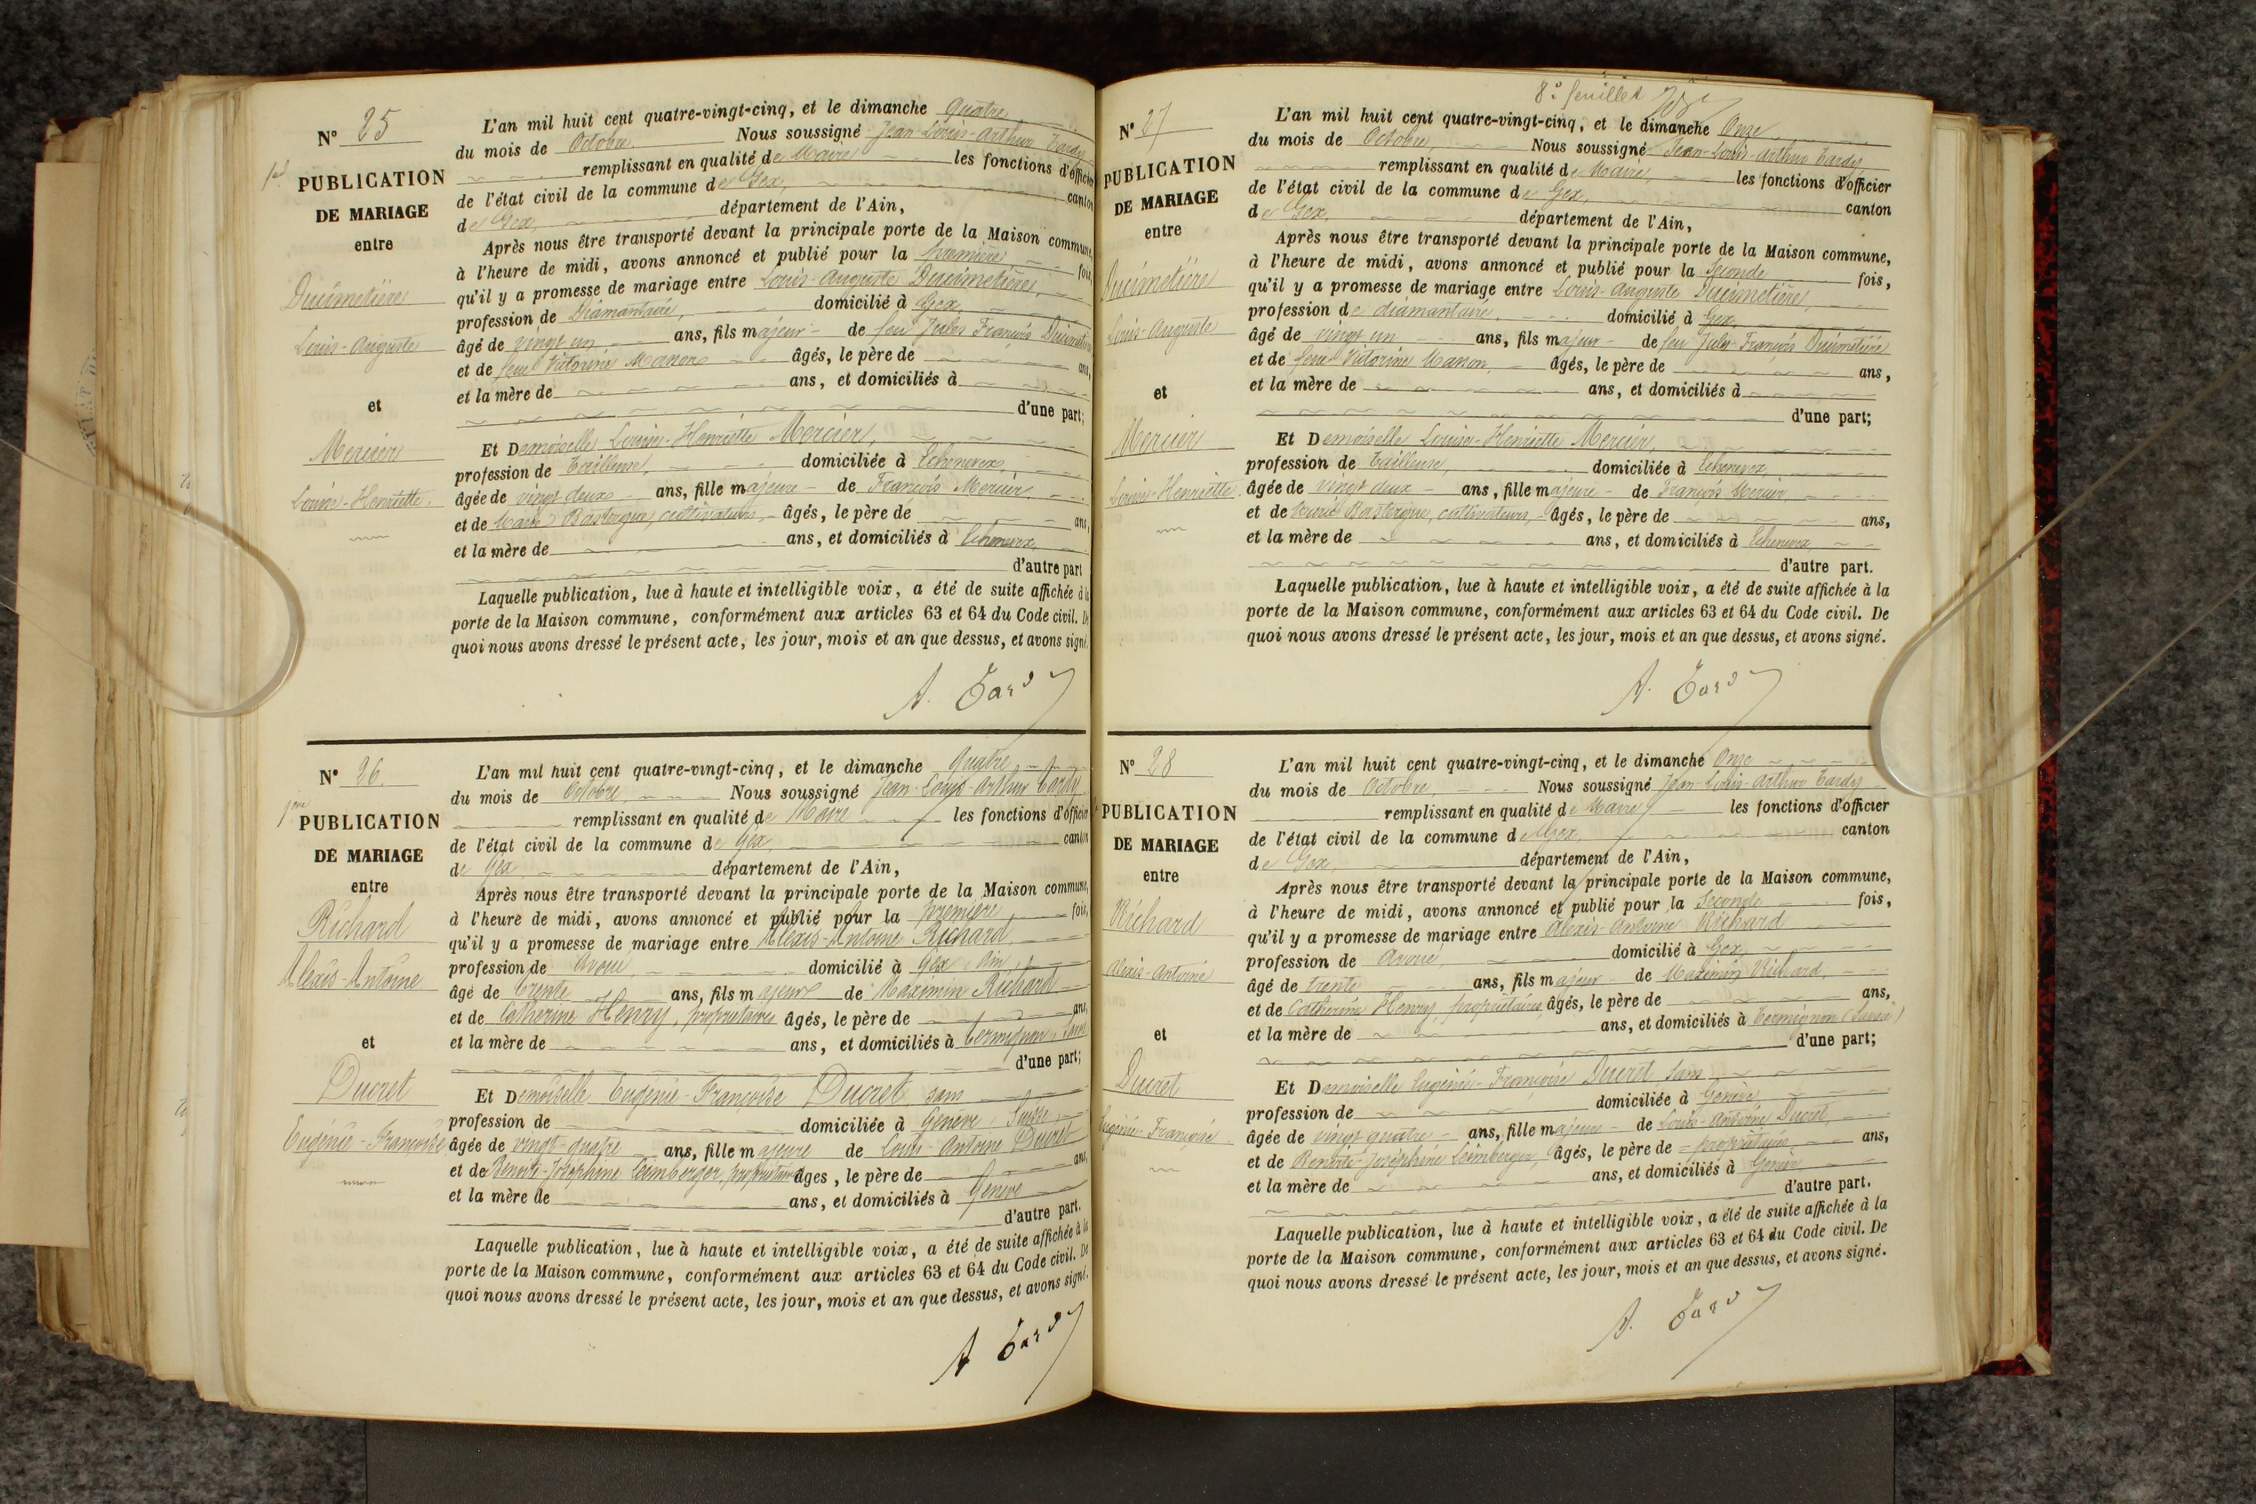 N° 25
1re
PUBLICATION
DE MARIAGE
entre
Ducimetière
Louis-Auguste
et
Mercier
Louise-Henriette
L'an mil huit cent quatre-vingt-cinq, et le dimanche Quatre
du mois de Octobre, Nous soussigné Jean-Louis-Arthur Tardy
remplissant en qualité de Maire les fonctions d'officier
de l'état civil de la commune de Gex, canton
de Gex, département de l'Ain,
Après nous être transporté devant la principale porte de la Maison commune,
à l'heure de midi, avons annoncé et publié pour la première, fois,
qu'il y a promesse de mariage entre Louis-Auguste Ducimetière,
profession de Diamantaire, domicilié à Gex,
âgé de vingt un ans, fils majeur de feu Jules François Ducimetière
et de feue Victorine Manon âgés, le père de ans,
et la mère de ans, et domiciliés à
d'une part;
Et Demoiselle Louise-Henriette Mercier,
profession de Tailleuse, domiciliée à Echenevex,
âgée de vingt deux ans, fille majeure de François Mercier,
et de Marie Bastergue, cultivateurs, âgés, le père de ans,
et la mère de ans, et domiciliés à Echenevex,
d'autre part
Laquelle publication, lue à haute et intelligible voix, a été de suite affichée à la
porte de la Maison commune, conformément aux articles 63 et 64 du Code civil. De
quoi nous avons dressé le présent acte, les jour, mois et an que dessus, et avons signé.
A. Tardy
N° 26
1ere
PUBLICATION
DE MARIAGE
entre
Richard
Alexis-Antoine
et
Ducret
Eugénie-Françoise
L'an mil huit cent quatre-vingt-cinq, et le dimanche Quatre
du mois de Octobre, Nous soussigné Jean-Louis-Arthur Tardy
remplissant en qualité de Maire les fonctions d'officier
de l'état civil de la commune de Gex, canton
de Gex, département de l'Ain,
Après nous être transporté devant la principale porte de la Maison commune,
à l'heure de midi, avons annoncé et publié pour la première fois,
qu'il y a promesse de mariage entre Alexis-Antoine Richard,
profession de Avoué, domicilié à Gex, Ain,
âgé de trente ans, fils majeur de Maximin Richard
et de Catherine Henry, propriétaires âgés, le père de ans,
et la mère de ans, et domiciliés à Termignon,
d'une part;
Et Demoiselle Eugénie-Françoise Ducret sans
profession de domiciliée à Genève, Suisse,
âgée de vingt-quatre ans, fille majeure de Louis-Antoine Ducret
et de Benoite-Joséphine Leimberger, propriétaires âges, le père de ans,
et la mère de ans, et domiciliés à Genève
d'autre part.
Laquelle publication, lue à haute et intelligible voix, a été de suite affichée à la
porte de la Maison commune, conformément aux articles 63 et 64 du Code civil. De
quoi nous avons dressé le présent acte, les jour, mois et an que dessus, et avons signé.
A Tardy
8e feuillet
N° 27
PUBLICATION
DE MARIAGE
entre
Ducimetière
Louis-Auguste
et
Mercier
Louise-Henriette
L'an mil huit cent quatre-vingt-cinq, et le dimanche Onze
du mois de Octobre, Nous soussigné Jean-Louis-Arthur Tardy
remplissant en qualité de Maire, les fonctions d'officier
de l'état civil de la commune de Gex, canton
de Gex, département de l'Ain,
Après nous être transporté devant la principale porte de la Maison commune,
à l'heure de midi, avons annoncé et publié pour la Seconde fois,
qu'il y a promesse de mariage entre Louis-Auguste Ducimetière,
profession de diamantaire, domicilié à Gex,
âgé de vingt un ans, fils majeur de feu Jules-François Ducimetière
et de feue Victorine Manon, âgés, le père de ans,
et la mère de ans, et domiciliés à
d'une part;
Et Demoiselle Louise-Henriette Mercier,
profession de Tailleuse, domiciliée à Echenevex,
âgée de vingt deux ans, fille majeure de François Mercier
et de Marie Bastergue, cultivateurs, âgés, le père de ans,
et la mère de ans, et domiciliés à Echenevex,
d'autre part.
Laquelle publication, lue à haute et intelligible voix, a été de suite affichée à la
porte de la Maison commune, conformément aux articles 63 et 64 du Code civil. De
quoi nous avons dressé le présent acte, les jour, mois et an que dessus, et avons signé.
A. Tardy
N° 28
PUBLICATION
DE MARIAGE
entre
Richard
Alexis-Antoine
et
Ducret
Eugénie-Françoise
L'an mil huit cent quatre-vingt-cinq, et le dimanche Onze
du mois de Octobre, Nous soussigné Jean-Louis-Arthur Tardy
remplissant en qualité de Maire les fonctions d'officier
de l'état civil de la commune de Gex, canton
de Gex, département de l'Ain,
Après nous être transporté devant la principale porte de la Maison commune,
à l'heure de midi, avons annoncé et publié pour la Seconde fois,
qu'il y a promesse de mariage entre Alexis-Antoine Richard
profession de Avoué domicilié à Gex,
âgé de trente ans, fils majeur de Maximin Richard,
et de Catherine Henry, propriétaires, âgés, le père de ans,
et la mère de ans, et domiciliés à Termignon (Savoie)
d'une part;
Et Demoiselle Eugénie-Françoise Ducret sans
profession de domiciliée à Genève
âgée de vingt quatre ans, fille majeure de Louis-Antoine Ducret,
et de Benoite-Joséphine Leimberger, âgés, le père de propriétaires, ans,
et la mère de ans, et domiciliés à Genève
d'autre part.
Laquelle publication, lue à haute et intelligible voix, a été de suite affichée à la
porte de la Maison commune, conformément aux articles 63 et 64 du Code civil. De
quoi nous avons dressé le présent acte, les jour, mois et an que dessus, et avons signé.
A. Tardy